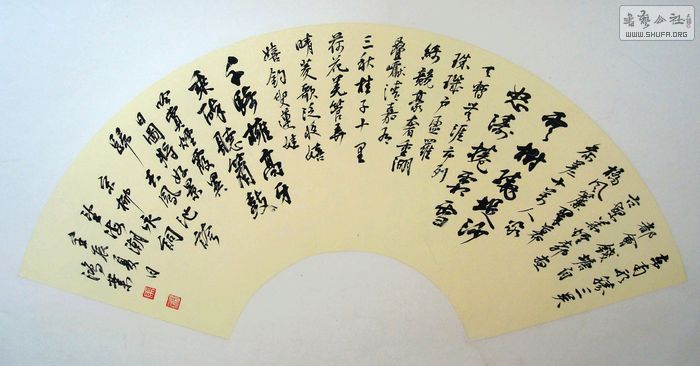 東南形勝三吳
都會錢塘自
古繁華煙柳畫
橋風簾翠幕
參差十萬人家
雲樹繞堤沙
怒濤捲霜雪
天塹無涯市列
珠璣戶盈羅
綺競豪奢重湖
疊巘清嘉有
三秋桂子十里
荷花羌管弄
晴菱歌泛夜嬉
嬉釣叟蓮娃
千騎擁高牙
乘醉聽簫鼓
吟賞煙霞異
日圖將好景
歸去鳳池誇
宋柳永詞
望海潮夏日
壬辰
書藝公社
WWW.SHUFA.ORG